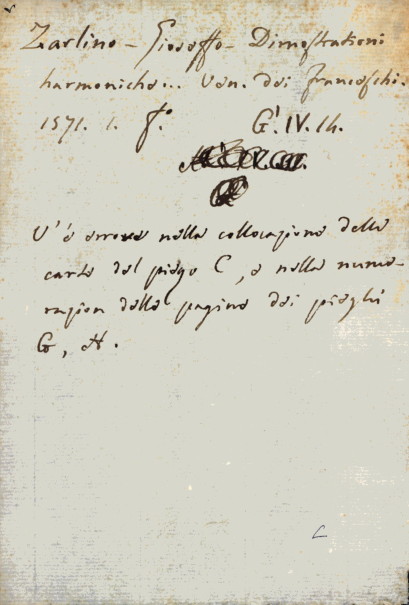 Zarlino - Gioseffo - Dimostrationi
harmoniche... Ven. dei Franceschi.
1571. 1. f.º G! IV. 14.
V'è errore nella collocazione delle
carte del piego C, e nella nume-
razion delle pagine dei pieghi
G, H.